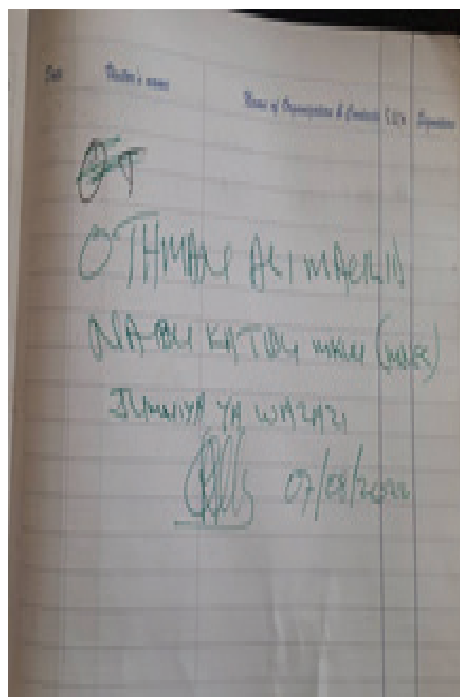 Date Visitor's name Name of Organization & Contacts Signature
OT
OTHMAN ALI MAULID
NAIBU KATIBU MKUU
JUMUIYA YA WAZAZI
07/08/2022